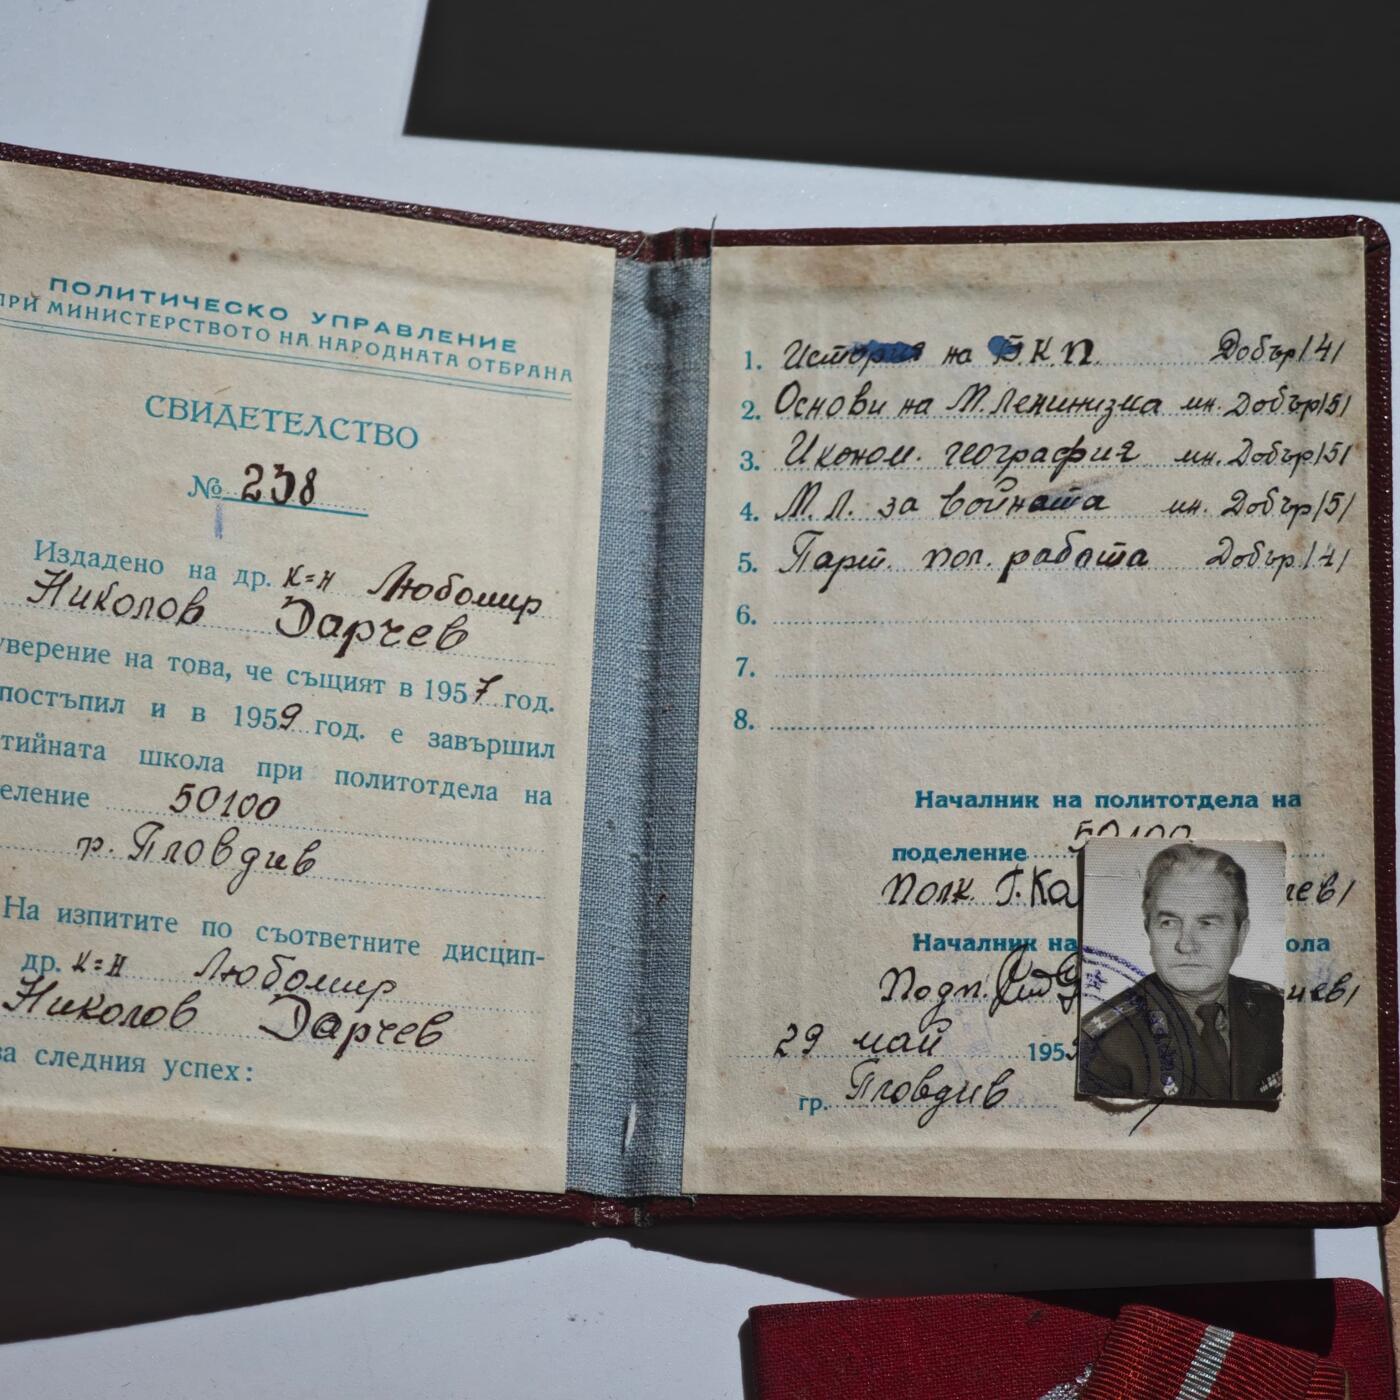 ПОЛИТИЧЕСКО УПРАВЛЕНИЕ
ПРИ МИНИСТЕРСТВОТО НА НАРОДНАТА ОТБРАНА
СВИДЕТЕЛСТВО
№ 238
Издадено на др. к=н Любомир
Николов Дарчев
уверение на това, че същият в 1957 год.
постъпил и в 1959 год. е завършил
тийната школа при политотдела на
еление 50100
гр. Пловдив
На изпитите по съответните дисцип-
др. к=н Любомир
Николов Дарчев
за следния успех:
1. История на Б.К.П. Добър /4/
2. Основи на М. Ленинизма мн. Добър /5/
3. Иконом. география мн. Добър /5/
4. М. Л. за войната мн. Добър /5/
5. Парт. пол. работа Добър /4/
6.
7.
8.
Началник на политотдела на
поделение 50100
Полк. Г. Ка чев/
Началник на ола
Подп. иев/
29 май 195
гр. Пловдив